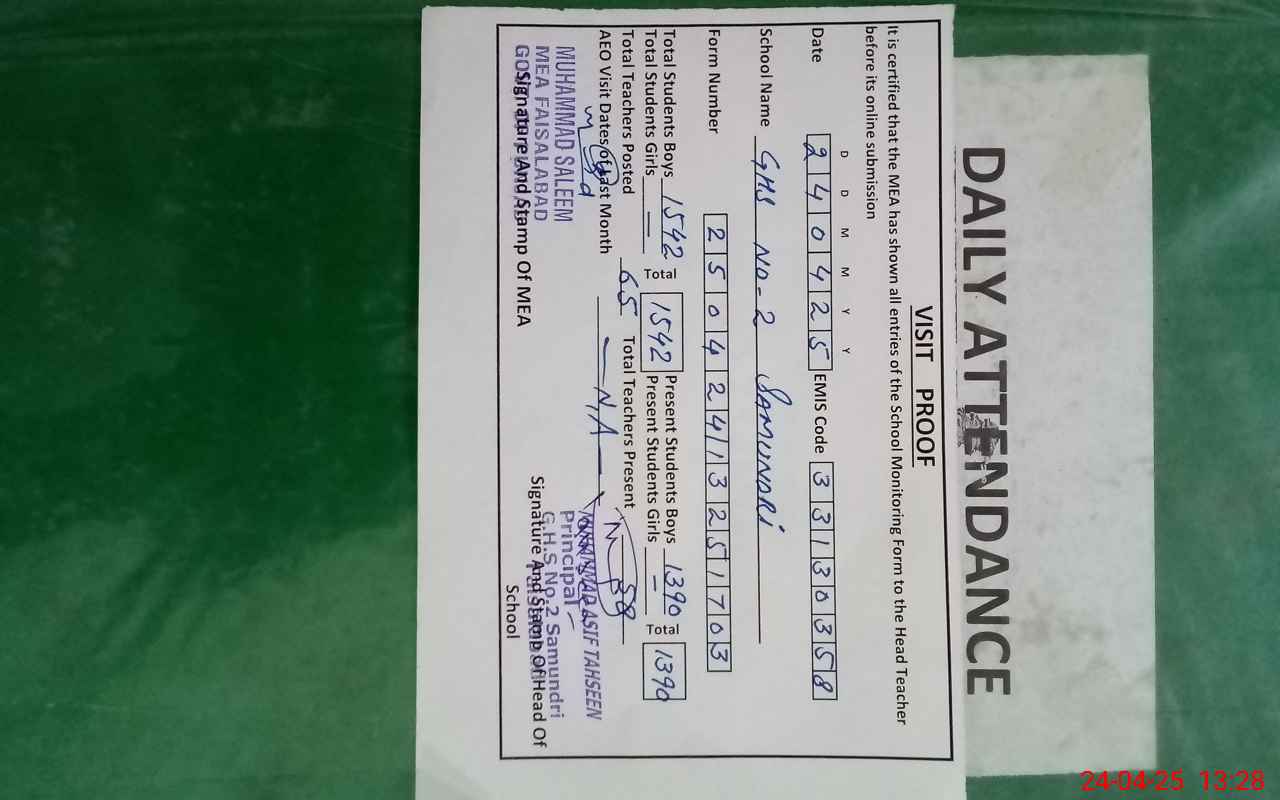 DAILY ATTENDANCE
VISIT PROOF
It is certified that the MEA has shown all entries of the School Monitoring Form to the Head Teacher
before its online submission
D D M M Y Y
Date 240425 EMIS Code 33130358
School Name GHS No-2 SAMUNDRI
Form Number 25042413251703
Total Students Boys 1542 Total 1542 Present Students Boys 1390 Total 1390
Total Students Girls — Present Students Girls —
Total Teachers Posted 65 Total Teachers Present 58
AEO Visit Dates of Last Month — N.A —
MUHAMMAD SALEEM
MEA FAISALABAD
Signature And Stamp Of MEA
MUHAMMAD ASIF TAHSEEN
Principal
G.H.S No.2 Samundri
Signature And Stamp Of Head Of
School
24-04-25 13:28